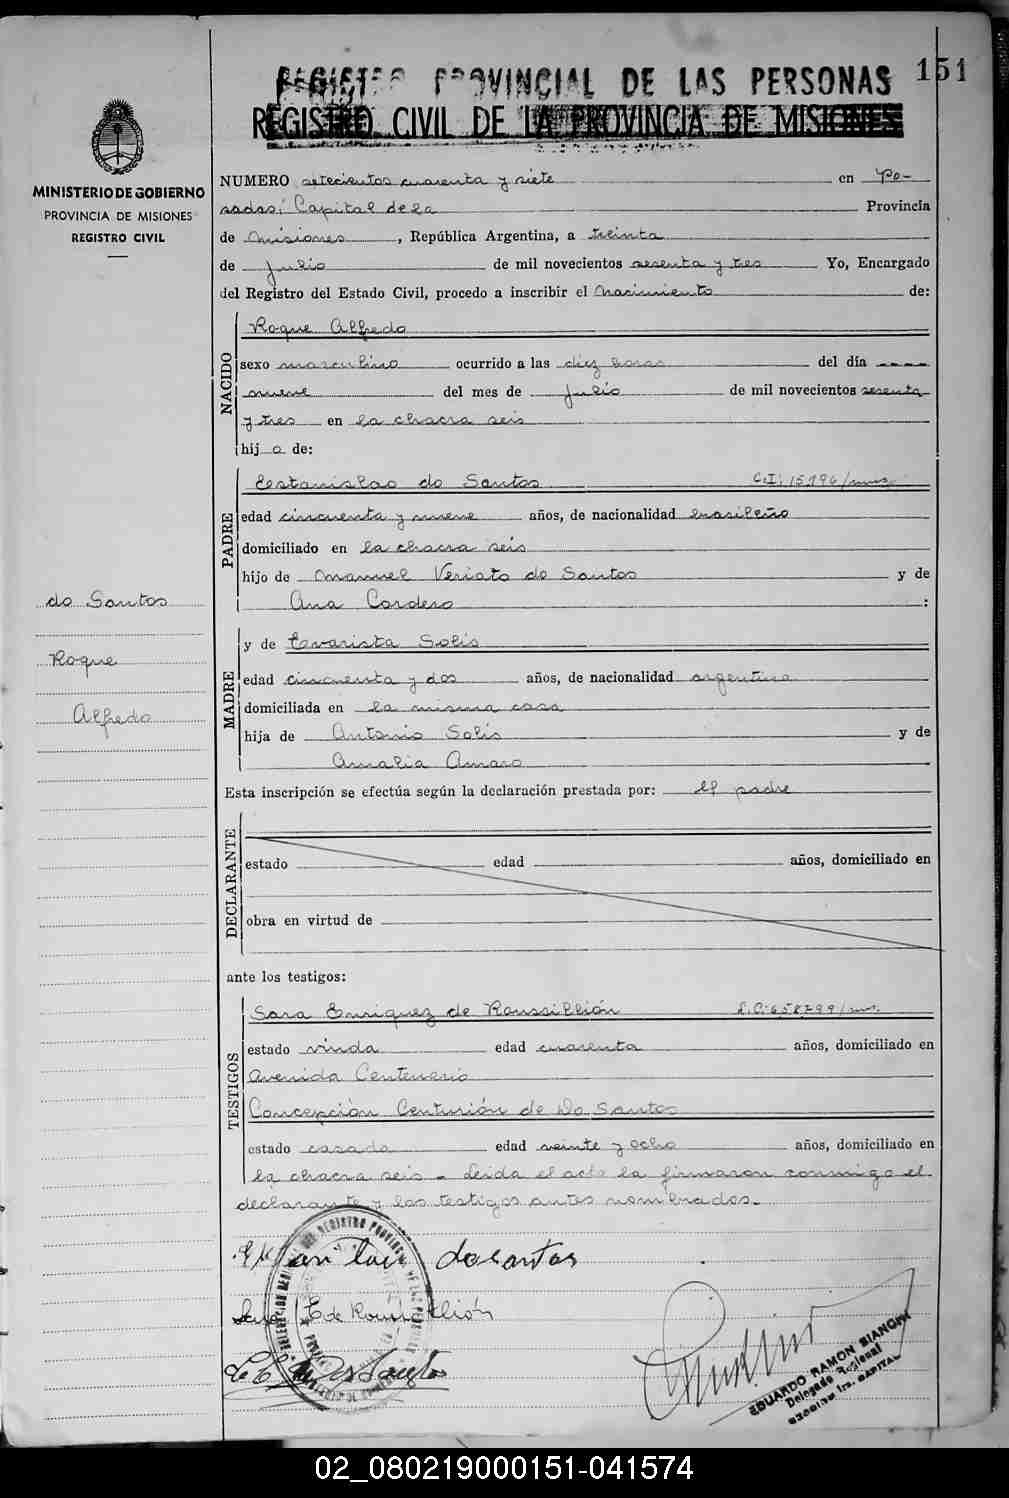 151
REGISTRO PROVINCIAL DE LAS PERSONAS
REGISTRO CIVIL DE LA PROVINCIA DE MISIONES
MINISTERIO DE GOBIERNO
PROVINCIA DE MISIONES
REGISTRO CIVIL
do Santos
Roque
Alfredo
NUMERO setecientos cuarenta y siete en Po-
sadas, Capital de la Provincia
de Misiones, República Argentina, a treinta
de julio de mil novecientos sesenta y tres Yo, Encargado
del Registro del Estado Civil, procedo a inscribir el Nacimiento de:
NACIDO
Roque Alfredo
sexo masculino ocurrido a las diez horas del día ----
nueve del mes de julio de mil novecientos sesenta
y tres en la chacra seis
hijo de:
PADRE
Estanislao do Santos C.I. 15.196/
edad cincuenta y nueve años, de nacionalidad brasileño
domiciliado en la chacra seis
hijo de Manuel Veriato do Santos y de
Ana Cordero :
MADRE
y de Evarista Solis
edad cincuenta y dos años, de nacionalidad argentina
domiciliada en la misma casa
hija de Antonio Solis y de
Amalia Amaro
Esta inscripción se efectúa según la declaración prestada por: el padre
DECLARANTE
estado edad años, domiciliado en
obra en virtud de
ante los testigos:
TESTIGOS
Sara Enriquez de Roussillión L.C. 658799/
estado viuda edad cuarenta años, domiciliado en
Avenida Centenario
Concepción Centurión de Do Santos
estado casada edad veinte y ocho años, domiciliado en
la chacra seis - Leida el acta la firmaron conmigo el
declarante y los testigos antes nombrados.-
dosantos
E de Roussillión
EDUARDO RAMON BIANCHI
Delegado Regional
CAPITAL
02_080219000151-041574